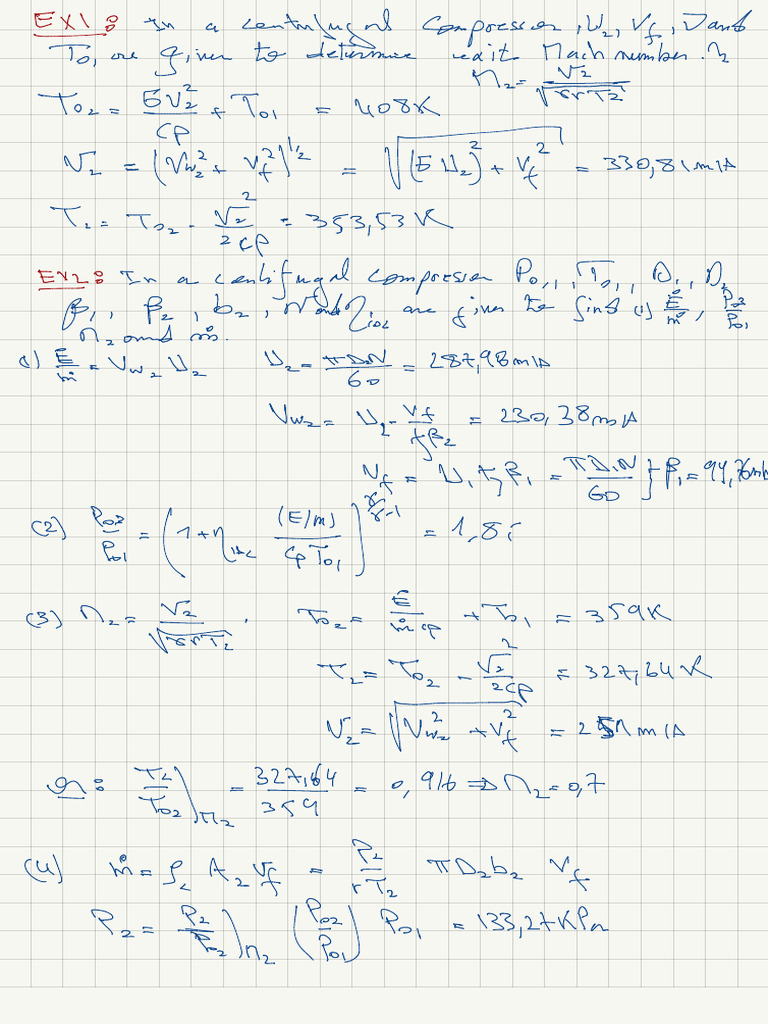 EX1: In a centrifugal compressor, U₂, V_f, N and
T₀₁ are given to determine exit Mach number. M₂
M₂ = V₂/√(γrT₂)
T₀₂ = εU₂²/cp + T₀₁ = 408K
V₂ = (V_w₂² + V_f²)^1/2 = √((εU₂)² + V_f²) = 330,81 m/s
T₂ = T₀₂ - V₂²/2cp = 353,53 K
EX2: In a centrifugal compressor P₀₁, T₀₁, D₁, D₂
β₁, β₂, b₂, N and η_isc are given to find (1) Ė/ṁ, P₀₂/P₀₁
M₂ and ṁ.
(1) Ė/ṁ = V_w₂ U₂ U₂ = πD₂N/60 = 287,98 m/s
V_w₂ = U₂ - V_f/tgβ₂ = 230,38 m/s
V_f = U₁ tgβ₁ = πD₁N/60 } β₁ = 94,76 m/s
(2) P₀₂/P₀₁ = (1 + η_isc (E/m)/(cp T₀₁))^γ/γ-1 = 1,8
(3) M₂ = V₂/√(γrT₂) . T₀₂ = Ė/ṁcp + T₀₁ = 359K
T₂ = T₀₂ - V₂²/2cp = 327,64 K
V₂ = √(V_w₂² + V_f²) = 251 m/s
or: T₂/T₀₂)M₂ = 327,64/359 = 0,916 ⇒ M₂ = 0,7
(4) ṁ = ρ₂ A₂ V_f = P₂/rT₂ πD₂b₂ V_f
P₂ = P₂/P₀₂)M₂ (P₀₂/P₀₁) P₀₁ = 133,27 KPa